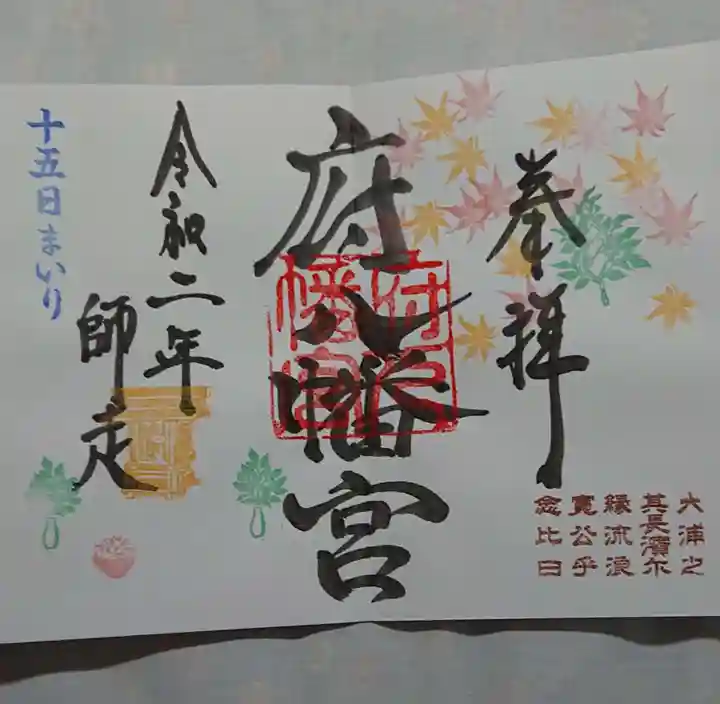 奉拝
府八幡宮
府八幡宮
令和二年
師走
十五日まいり
大浦之
其長濱尓
縁流浪
寛公乎
念比日